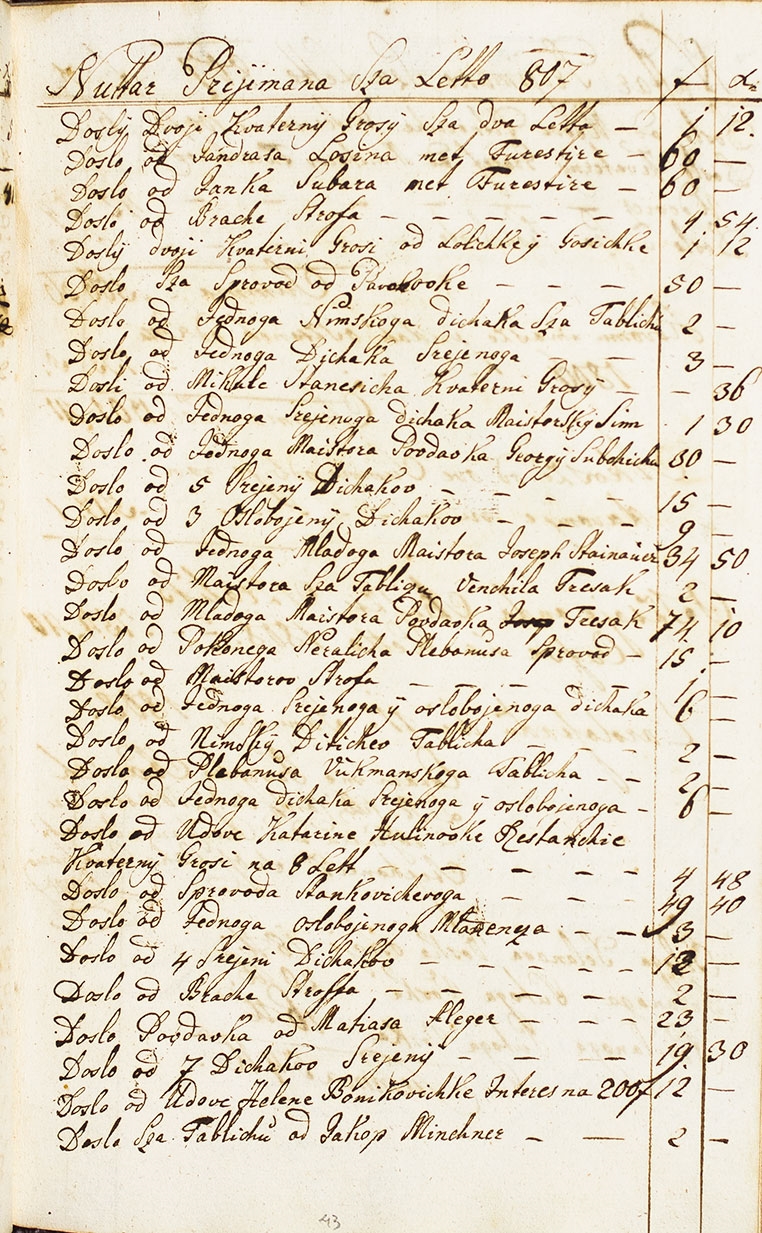 Nuttar Prijimana Sza Letto 807 f d
Dosly Dvoji Kvaterny Grosy Sza dva Letta — 1 12.
Doslo od Jandrasa Losina met Furestire — 60 —
Doslo od Janka Subara met Furestire — 60 —
Dosli od Brache Strofa — — — — — 4 54.
Dosly dvoji Kvaterni Grosi od Lolichke y Gosichke 1 12
Doslo Sza Sprovod od — — — 50 —
Doslo od Jednoga Nimskoga dichaka Sza Tablichu 2 —
Doslo od Jednoga Dichaka Srejenoga — — — 3 —
Dosli od Mikule Stanesicha Kvaterni Grosy — — 36
Doslo od Jednoga Srejenoga dichaka Maistorsky Sim 1 30
Doslo od Jednoga Maistora Povdavka Georgy Subchichu 80 —
Doslo od 5 Srejeny Dichakov — — — — 15 —
Doslo od 3 Oslobojeny Dichakov — — — 9 —
Doslo od Jednoga Mladoga Maistora Joseph Stainauer 34 50.
Doslo od Maistora Sza Tabligu Venchila Tresak 2 —
Doslo od Mladoga Maistora Povdavka Tresak 74 10
Doslo od Pokonega Neralicha Plebanusa Sprovod — 15 —
Doslo od Maistorov Strofa — — — — 1 —
Doslo od Jednoga Srejenoga y oslobojenoga dichaka 6 —
Doslo od Nimsky Ditichev Tablicha — — 2 —
Doslo od Plebanusa Vukmanskoga Tablicha — — 2 —
Doslo od Jednoga dichaka Srejenoga y oslobojenoga — 6 —
Doslo od Udove Katarine Hulinovke Restanchie
Kvaterny Grosi na 8 Lett — — — — 4 48
Doslo od Sprovoda Stankovichevoga — — — 49 40
Doslo od Jednoga oslobojenoga Mladencza — — 3 —
Doslo od 4 Srejeni Dichakov — — — — — 12 —
Doslo od Brache Stroffa — — — — — 2 —
Doslo Povdavka od Matiasa Fleger — — — 23 —
Doslo od 7 Dichakov Srejeny — — — 19 30
Doslo od Udove Helene Bonikovichke Interes na 200f 12 —
Doslo Sza Tablichu od Jakop Minchner — — 2 —
43